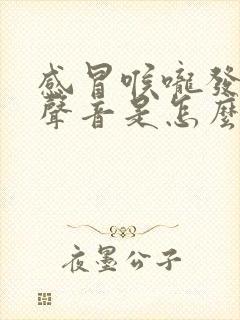 感冒喉嚨發
聲音是怎麼
夜墨公子